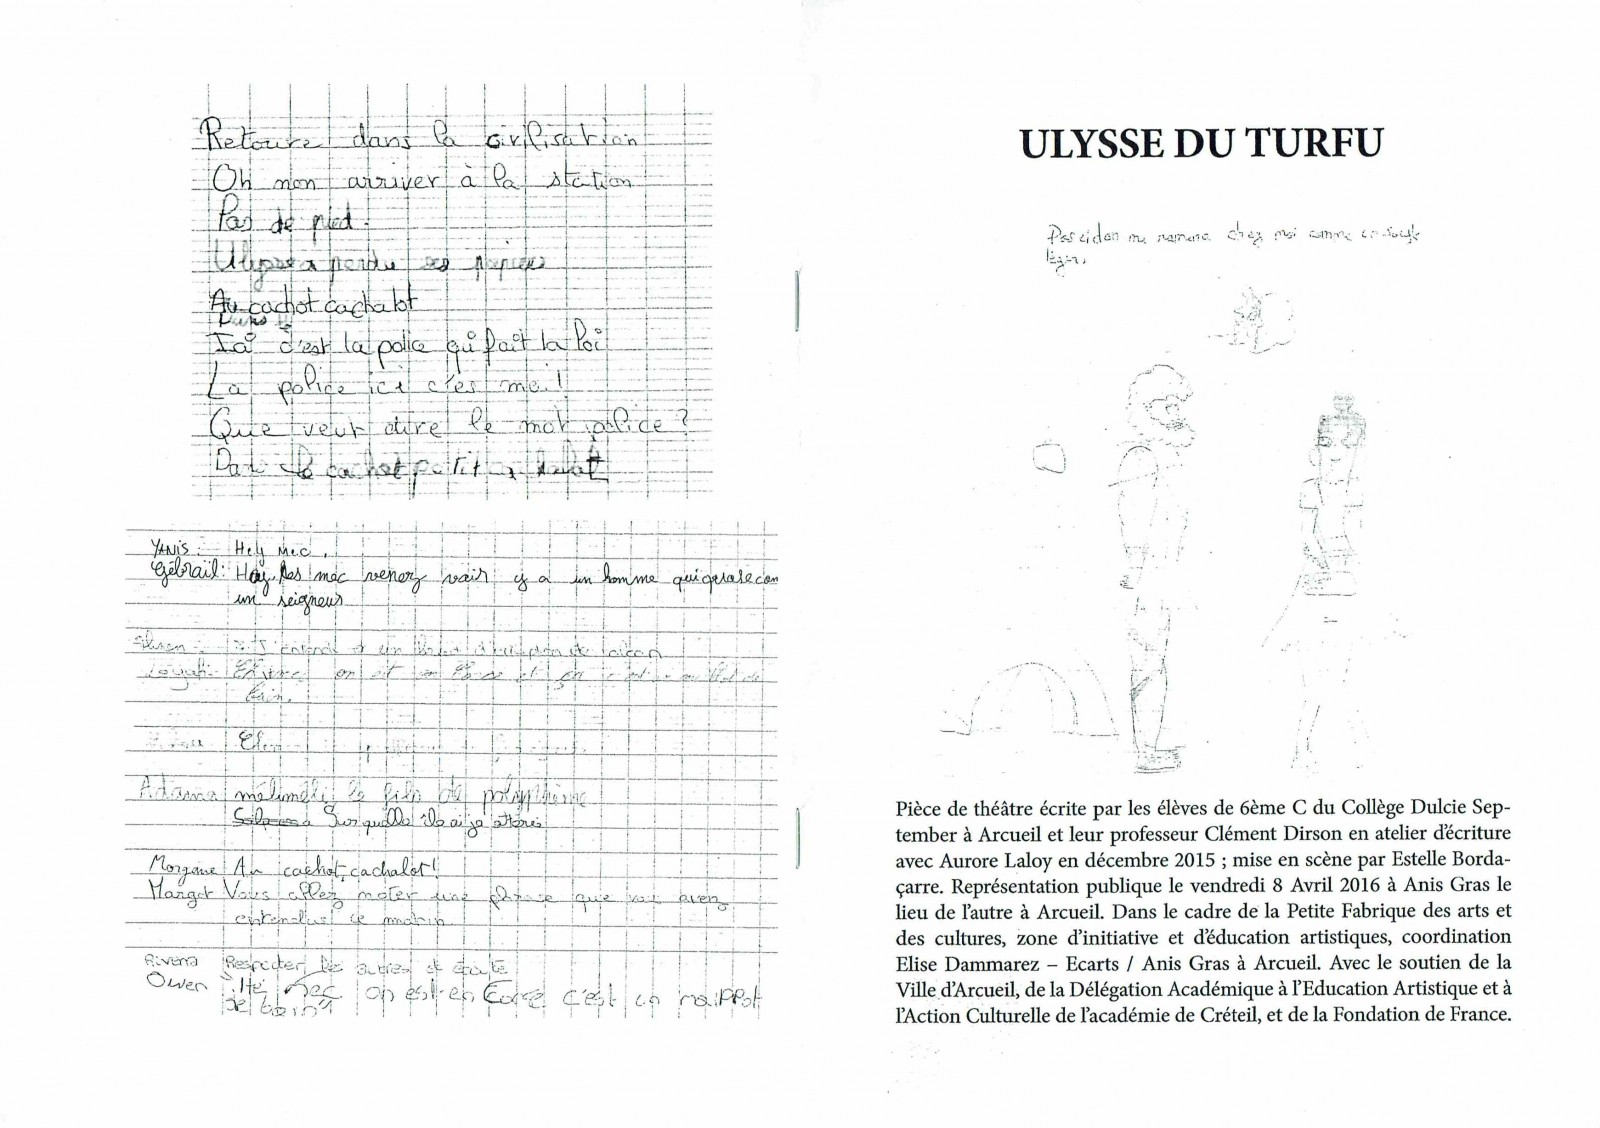 Retoure dans la civilisation
Oh non arriver à la station
Pas de pied.
Ulysse a perdu ses papiers
Au cachot cachalot
Ici c'est la police qui fait la loi
La police ici c'es moi!
Que veut dire le mot police ?
Dans le cachot petit
YANIS : Hey Mec,
Gébrail: Hey, les mec venez voir y a un homme qui
un seigneur
on est en
bain.
Adama mélimeli, le fils de polyphème
Sur quelle île ai je
Morgane Au cachot, cachalot!
Margot Vous allez noter une phrase que vous avez
entendus ce matin
Riverra Respecter les autres et écoute
Owen : Hé mec on est en c'est un maippot
de bain
ULYSSE DU TURFU
Poseidon me ramena chez moi comme
léger.
Pièce de théâtre écrite par les élèves de 6ème C du Collège Dulcie Sep-
tember à Arcueil et leur professeur Clément Dirson en atelier d'écriture
avec Aurore Laloy en décembre 2015 ; mise en scène par Estelle Borda-
çarre. Représentation publique le vendredi 8 Avril 2016 à Anis Gras le
lieu de l'autre à Arcueil. Dans le cadre de la Petite Fabrique des arts et
des cultures, zone d'initiative et d'éducation artistiques, coordination
Elise Dammarez – Ecarts / Anis Gras à Arcueil. Avec le soutien de la
Ville d'Arcueil, de la Délégation Académique à l'Education Artistique et à
l'Action Culturelle de l'académie de Créteil, et de la Fondation de France.